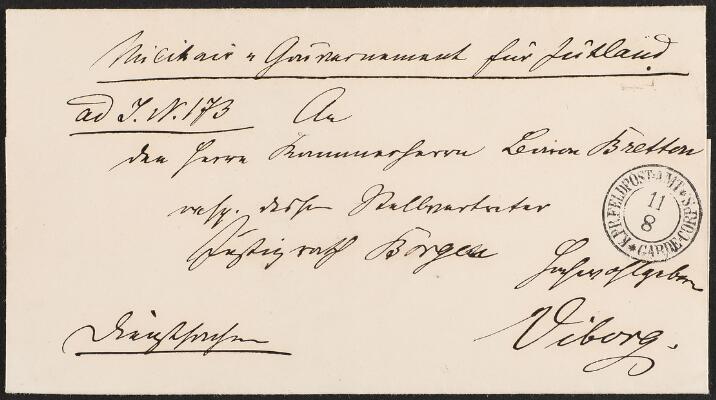 Militair-Gouvernement für Jütland
ad J.N. 173 An
den Herrn Kammerherrn Baron Bretton
resp. dessen Stellvertreter
Justizrath Börgen
Hochwohlgeboren
Dienstsache
Viborg.
K.PR.FELDPOST-AMT * GARDE-CORPS
11
8